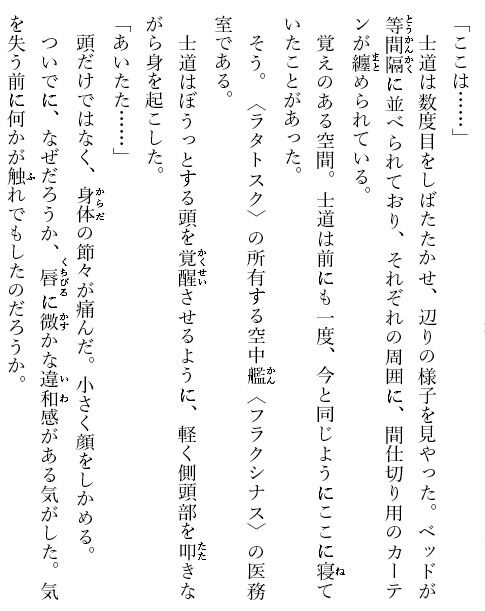 「ここは……」
　士道は数度目をしばたたかせ、辺りの様子を見やった。ベッドが
等間隔に並べられており、それぞれの周囲に、間仕切り用のカーテ
ンが纏められている。
　覚えのある空間。士道は前にも一度、今と同じようにここに寝て
いたことがあった。
　そう。〈ラタトスク〉の所有する空中艦〈フラクシナス〉の医務
室である。
　士道はぼうっとする頭を覚醒させるように、軽く側頭部を叩きな
がら身を起こした。
「あいたた……」
　頭だけではなく、身体の節々が痛んだ。小さく顔をしかめる。
　ついでに、なぜだろうか、唇に微かな違和感がある気がした。気
を失う前に何かが触れでもしたのだろうか。